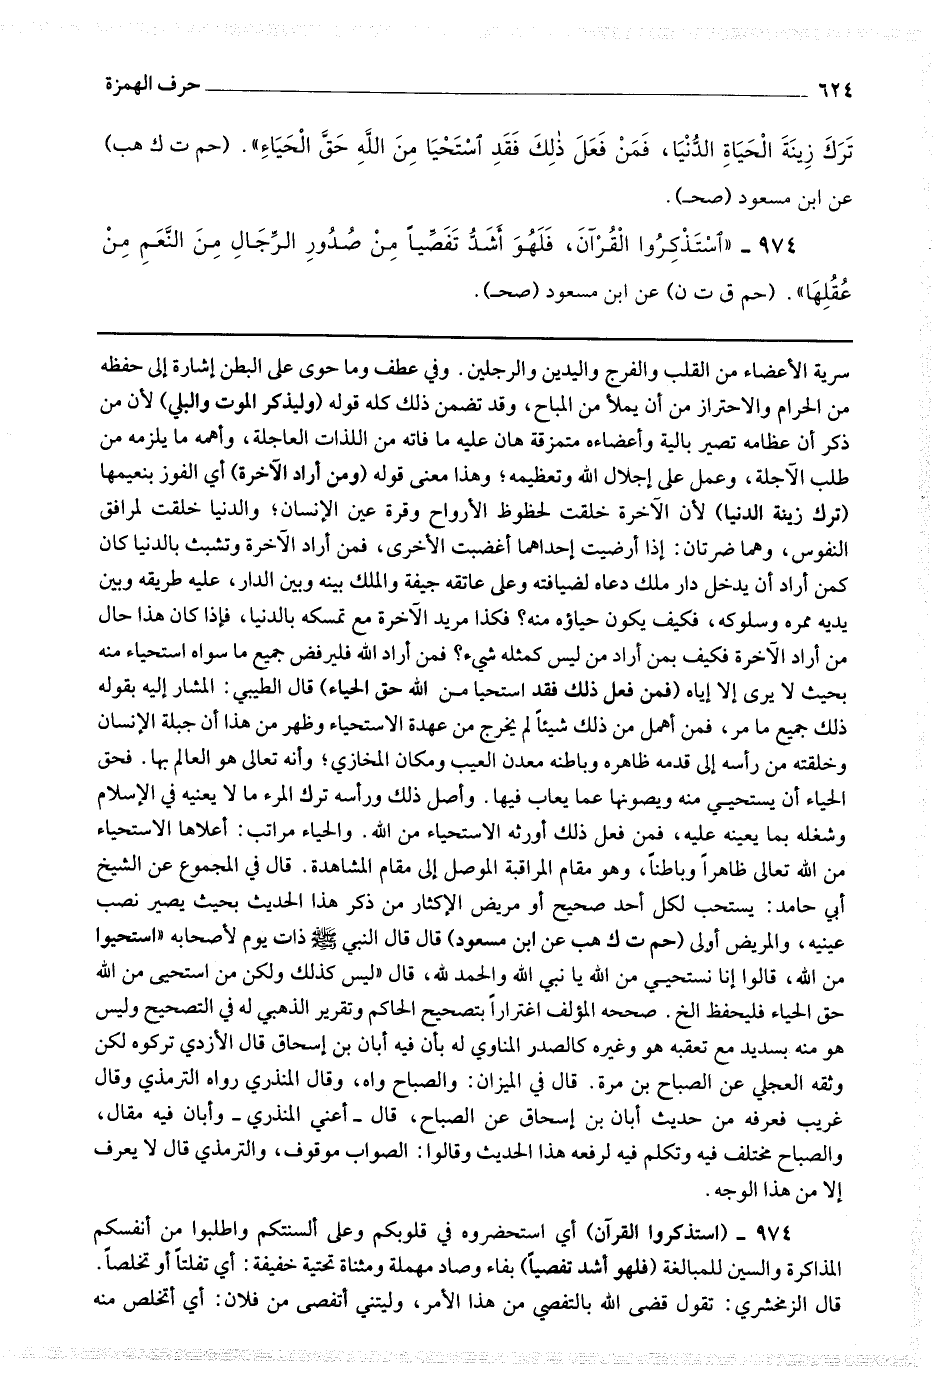 ٦٢٤ ـــــــــــــــــــــــــــــــــــــــــــــــــــــــــــ حرف الهمزة
تَرَكَ زِينَةَ الْحَيَاةِ الدُّنْيَا، فَمَنْ فَعَلَ ذٰلِكَ فَقَدِ ٱسْتَحْيَا مِنَ اللَّهِ حَقَّ الْحَيَاءِ». (حم ت ك هب)
عن ابن مسعود (صحـ).
٩٧٤ ـ «ٱسْتَذْكِرُوا الْقُرْآنَ، فَلَهُوَ أَشَدُّ تَفَصِّياً مِنْ صُدُورِ الرِّجَالِ مِنَ النَّعَمِ مِنْ
عُقُلِهَا». (حم ق ت ن) عن ابن مسعود (صحـ).
سرية الأعضاء من القلب والفرج واليدين والرجلين. وفي عطف وما حوى على البطن إشارة إلى حفظه
من الحرام والاحتراز من أن يملأ من المباح، وقد تضمن ذلك كله قوله (وليذكر الموت والبلي) لأن من
ذكر أن عظامه تصير بالية وأعضاءه متمزقة هان عليه ما فاته من اللذات العاجلة، وأهمه ما يلزمه من
طلب الآجلة، وعمل على إجلال الله وتعظيمه؛ وهذا معنى قوله (ومن أراد الآخرة) أي الفوز بنعيمها
(ترك زينة الدنيا) لأن الآخرة خلقت لحظوظ الأرواح وقرة عين الإنسان؛ والدنيا خلقت لمرافق
النفوس، وهما ضرتان: إذا أرضيت إحداهما أغضبت الأخرى، فمن أراد الآخرة وتشبث بالدنيا كان
كمن أراد أن يدخل دار ملك دعاه لضيافته وعلى عاتقه جيفة والملك بينه وبين الدار، عليه طريقه وبين
يديه ممره وسلوكه، فكيف يكون حياؤه منه؟ فكذا مريد الآخرة مع تمسكه بالدنيا، فإذا كان هذا حال
من أراد الآخرة فكيف بمن أراد من ليس كمثله شيء؟ فمن أراد الله فليرفض جميع ما سواه استحياء منه
بحيث لا يرى إلا إياه (فمن فعل ذلك فقد استحيا مـن الله حق الحياء) قال الطيبي: المشار إليه بقوله
ذلك جميع ما مر، فمن أهمل من ذلك شيئاً لم يخرج من عهدة الاستحياء وظهر من هذا أن جبلة الإنسان
وخلقته من رأسه إلى قدمه ظاهره وباطنه معدن العيب ومكان المخازي؛ وأنه تعالى هو العالم بها. فحق
الحياء أن يستحيـي منه ويصونها عما يعاب فيها. وأصل ذلك ورأسه ترك المرء ما لا يعنيه في الإسلام
وشغله بما يعينه عليه، فمن فعل ذلك أورثه الاستحياء من الله. والحياء مراتب: أعلاها الاستحياء
من الله تعالى ظاهراً وباطناً، وهو مقام المراقبة الموصل إلى مقام المشاهدة. قال في المجموع عن الشيخ
أبي حامد: يستحب لكل أحد صحيح أو مريض الإكثار من ذكر هذا الحديث بحيث يصير نصب
عينيه، والمريض أولى (حم ت ك هب عن ابن مسعود) قال قال النبي ﷺ ذات يوم لأصحابه «استحيوا
من الله، قالوا إنا نستحيـي من الله يا نبي الله والحمد لله، قال «ليس كذلك ولكن من استحيى من الله
حق الحياء فليحفظ الخ. صححه المؤلف اغتراراً بتصحيح الحاكم وتقرير الذهبي له في التصحيح وليس
هو منه بسديد مع تعقبه هو وغيره كالصدر المناوي له بأن فيه أبان بن إسحاق قال الأزدي تركوه لكن
وثقه العجلي عن الصباح بن مرة. قال في الميزان: والصباح واه، وقال المنذري رواه الترمذي وقال
غريب فعرفه من حديث أبان بن إسحاق عن الصباح، قال ـ أعني المنذري ـ وأبان فيه مقال،
والصباح مختلف فيه وتكلم فيه لرفعه هذا الحديث وقالوا: الصواب موقوف، والترمذي قال لا يعرف
إلا من هذا الوجه.
٩٧٤ ـ (استذكروا القرآن) أي استحضروه في قلوبكم وعلى ألسنتكم واطلبوا من أنفسكم
المذاكرة والسين للمبالغة (فلهو أشد تفصياً) بفاء وصاد مهملة ومثناة تحتية خفيفة: أي تفلتاً أو تخلصاً.
قال الزمخشري: تقول قضى الله بالتفصي من هذا الأمر، وليتني أتفصى من فلان: أي أتخلص منه